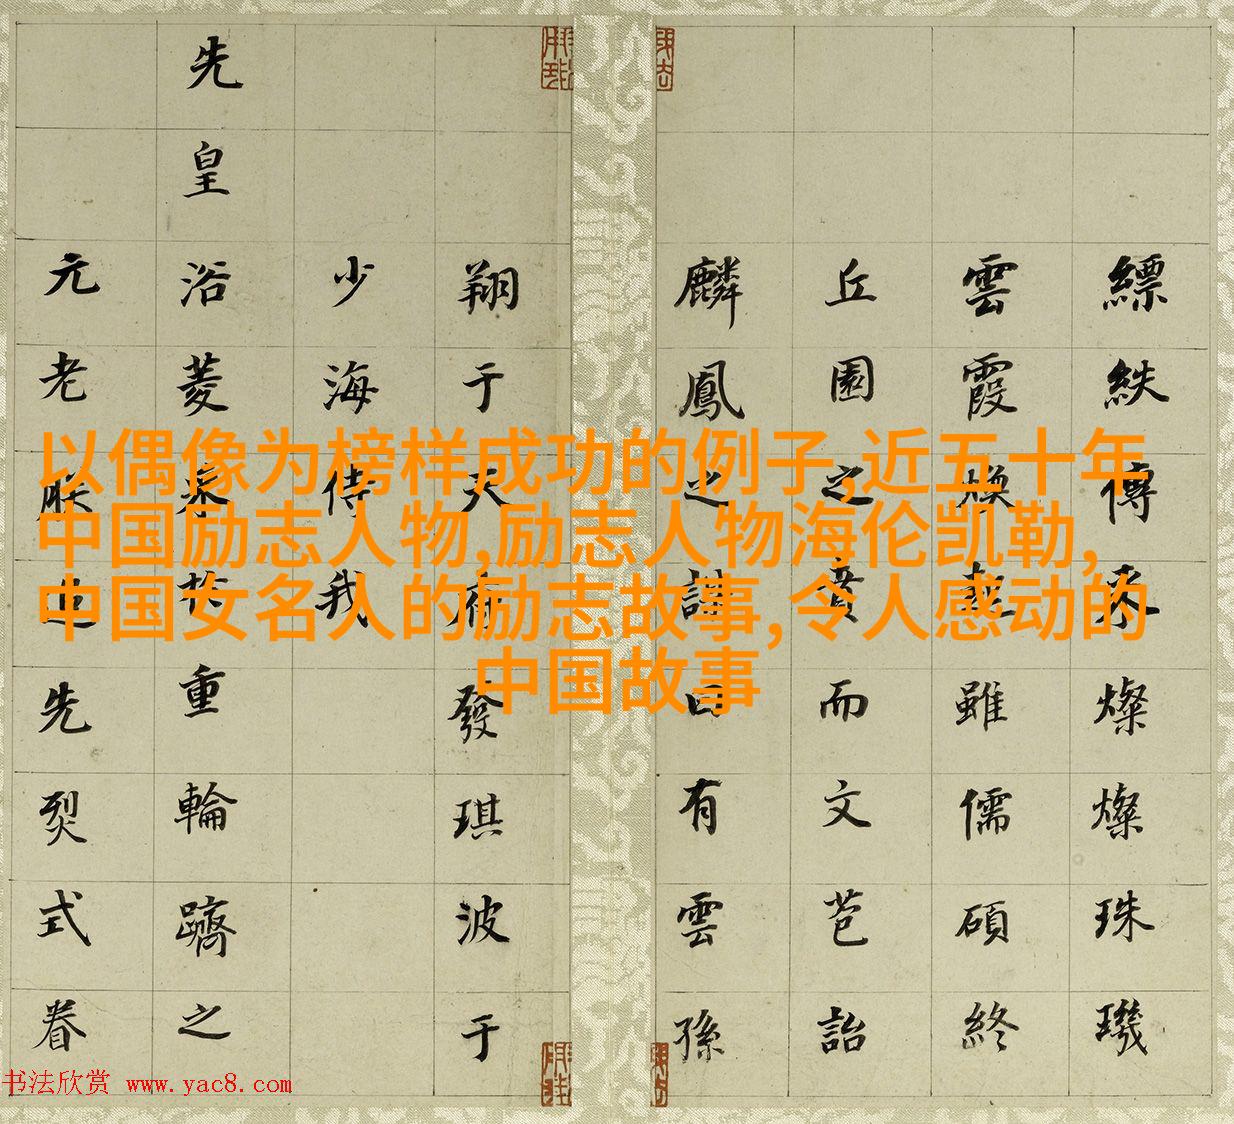 縹紩傳燦燦珠璣
雲霞煥雖儒碩終
丘園之賁而文苞詒
麟鳳之曰有雲孫
翔于天府發琪波于
少海侍我
先皇浴菱采於重輪躋之
元老朕追先烈式眷
以偶像为榜样成功的例子,近五十年
中国励志人物,励志人物海伦凯勒,
中国女名人的励志故事,令人感动的
中国故事
书法欣赏 www.yac8.com